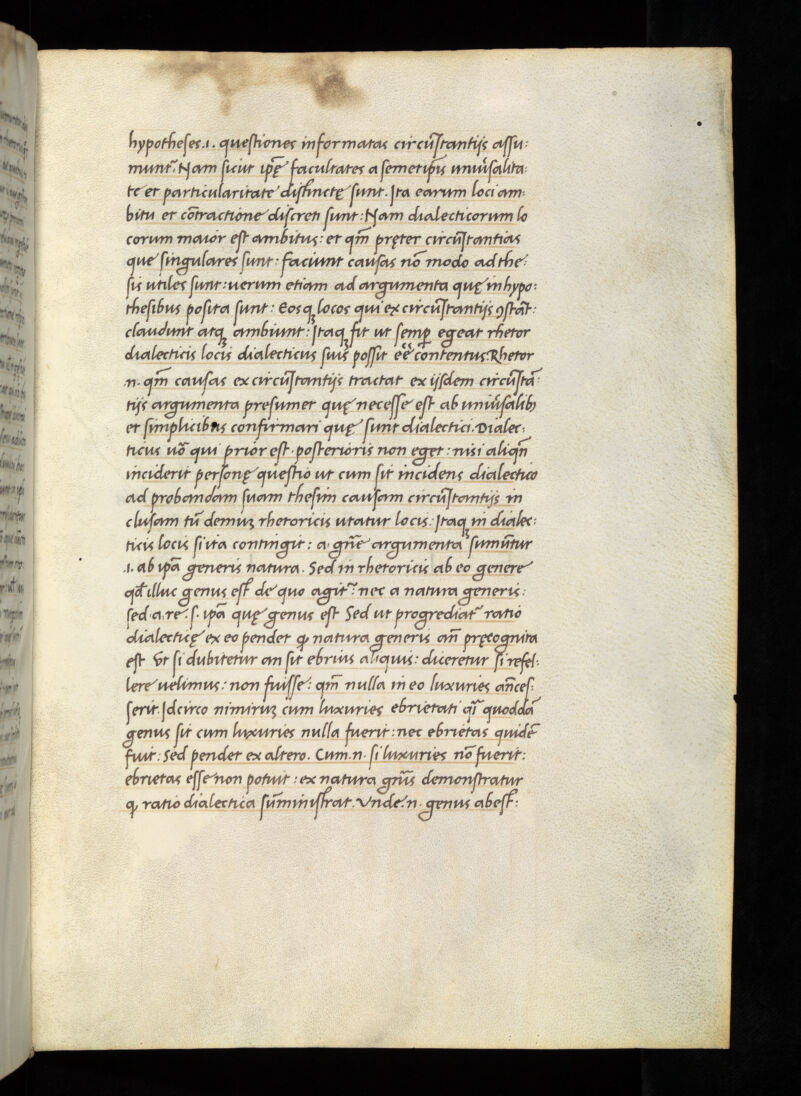 hypotheses .i. questiones informatas circūstantijs assu:
munt᷑. Nam sicut ip̄ę facultates a semetip̄is uniu̓salita:
te et particularitate distinctę sunt. Ita earum loci am:
bitu et cōtractione discreti sunt: Nam dialecticorum lo
corum maior est ambitus: et qm̄ pręter circūstantias
que singulares sunt: faciunt causas nō modo ad the:
sis utiles sunt: uerum etiam ad argumenta quę in hypo:
thesibus posita sunt: Eosqꝫ locos qui ex circūstantijs ꝯstāt:
claudunt atqꝫ ambiunt: Itaqꝫ fit ut semꝑ egeat rhetor
dialecticis locis dialecticus suis possit eē contentus: Rhetor
.n. qm̄ causas ex circūstantijs tractat ex ijsdem circūstā
tijs argumenta presumet quę necesse est ab uniu̓salibꝫ
et simplicibus confirmari quę sunt dialectici. Dialec:
ticus uō qui prior est. posterioris non eget: nisi aliqn̄
inciderit personę questio ut cum sit incidens dialectico
ad probandam suam thesim causam circūstantijs in
clusam tū demuꝫ rhetoricis utatur locis: Itaqꝫ in dialec:
ticis locis si ita contingit: a gn̄e argumenta sumūtur
.i. ab ip̄a generis natura. Sed in rhetoricis ab eo genere
qd̄ illuc genus est de quo agit᷑: nec a natura generis:
sed .a. re: s. ip̄a quę genus est Sed ut progrediat᷑ ratio
dialectię ex eo pendet ꝙ natura generis an̄ pręcognita
est Vt si dubitetur an sit ebrius aliquis: diceretur si refel:
lere uelimus: non fuisse: qm̄ nulla in eo luxuries an̄ces:
serit. Idcirco nimiruꝫ cum luxuries ebrietati qi̓ quoddā
genus sit cum luxuries nulla fuerit: nec ebrietas quidē
fuit: Sed pendet ex altero. Cum .n. si luxuries nō fuerit:
ebrietas esse non potuit: ex natura gn̄is demonstratur
ꝙ ratio dialectica sūministrat. Vnde .n. genus abest: